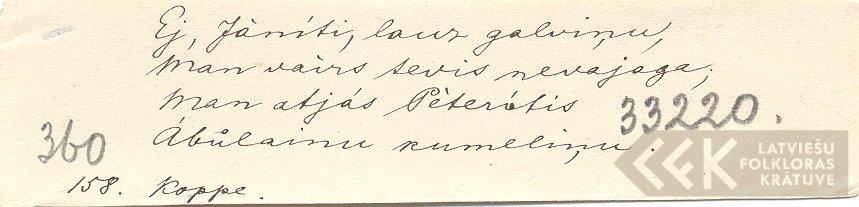 Ej, Jànīti, lauz galviņu,
Man vairs tevis nevajaga;
Man atjás Pèterītis
33220.
Ábůlainu kumeliņu.
360
158. Koppe.
LATVIEŠU
FOLKLORAS
KRĀTUVE